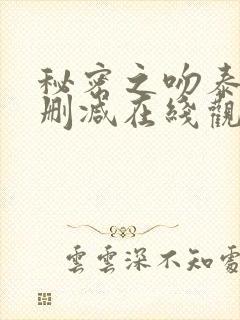 秘密之吻泰
删减在綫觀
雲雲深不知處